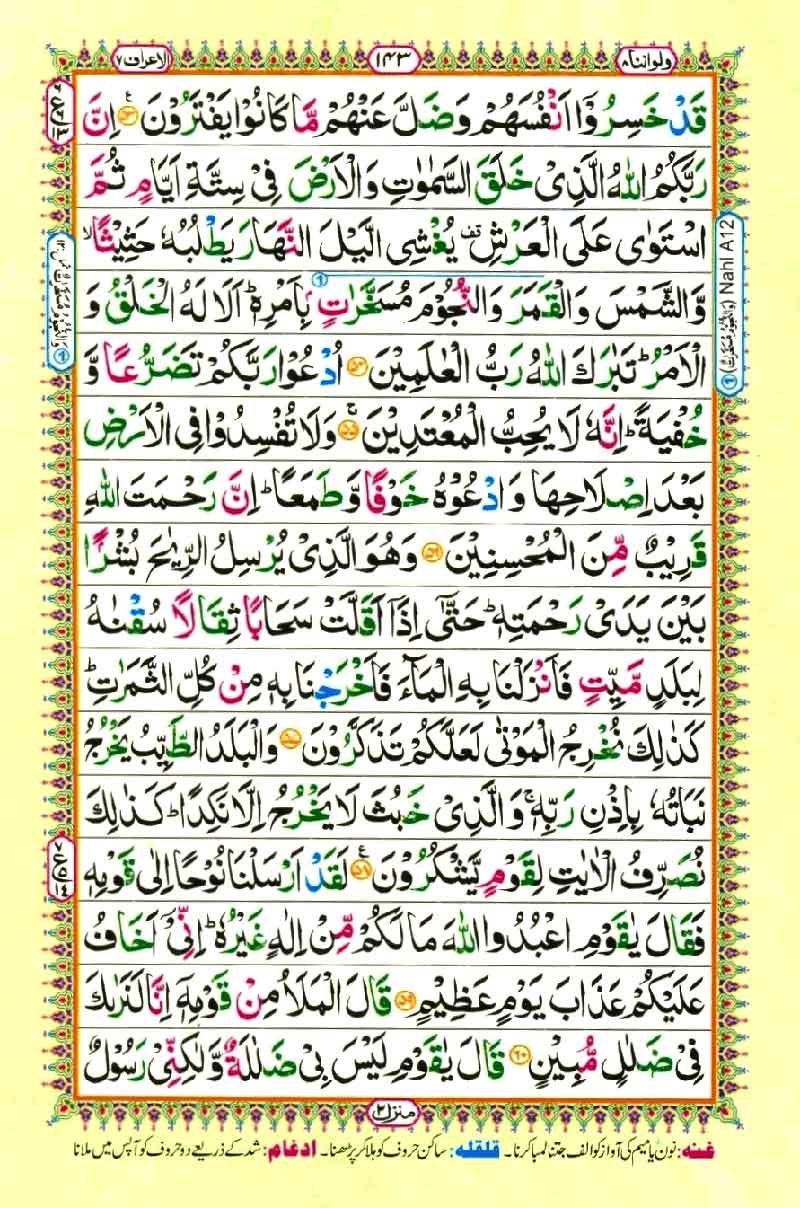 ولواننا ٨
١٤٣
الاعراف ٧
قَدْ خَسِرُوْۤا اَنْفُسَهُمْ وَضَلَّ عَنْهُمْ مَّا كَانُوْا يَفْتَرُوْنَ ۝٥٣ اِنَّ
رَبَّكُمُ اللهُ الَّذِىْ خَلَقَ السَّمٰوٰتِ وَالْاَرْضَ فِىْ سِتَّةِ اَيَّامٍ ثُمَّ
اسْتَوٰى عَلَى الْعَرْشِ قف يُغْشِى الَّيْلَ النَّهَارَ يَطْلُبُهٗ حَثِيْثًا ۙ
وَّالشَّمْسَ وَالْقَمَرَ وَالنُّجُوْمَ مُسَخَّرٰتٍۭ ① بِاَمْرِهٖ ؕ اَلَا لَهُ الْخَلْقُ وَ
الْاَمْرُ ؕ تَبٰرَكَ اللهُ رَبُّ الْعٰلَمِيْنَ ۝٥٤ اُدْعُوْا رَبَّكُمْ تَضَرُّعًا وَّ
خُفْيَةً ؕ اِنَّهٗ لَا يُحِبُّ الْمُعْتَدِيْنَ ۝٥٥ ۚ وَلَا تُفْسِدُوْا فِى الْاَرْضِ
بَعْدَ اِصْلَاحِهَا وَادْعُوْهُ خَوْفًا وَّطَمَعًا ؕ اِنَّ رَحْمَتَ اللهِ
قَرِيْبٌ مِّنَ الْمُحْسِنِيْنَ ۝٥٦ وَهُوَ الَّذِىْ يُرْسِلُ الرِّيٰحَ بُشْرًۢا
بَيْنَ يَدَىْ رَحْمَتِهٖ ؕ حَتّٰۤى اِذَاۤ اَقَلَّتْ سَحَابًا ثِقَالًا سُقْنٰهُ
لِبَلَدٍ مَّيِّتٍ فَاَنْزَلْنَا بِهِ الْمَآءَ فَاَخْرَجْنَا بِهٖ مِنْ كُلِّ الثَّمَرٰتِ ؕ
كَذٰلِكَ نُخْرِجُ الْمَوْتٰى لَعَلَّكُمْ تَذَكَّرُوْنَ ۝٥٧ وَالْبَلَدُ الطَّيِّبُ يَخْرُجُ
نَبَاتُهٗ بِاِذْنِ رَبِّهٖ ۚ وَالَّذِىْ خَبُثَ لَا يَخْرُجُ اِلَّا نَكِدًا ؕ كَذٰلِكَ
نُصَرِّفُ الْاٰيٰتِ لِقَوْمٍ يَّشْكُرُوْنَ ۝٥٨ لَقَدْ اَرْسَلْنَا نُوْحًا اِلٰى قَوْمِهٖ
فَقَالَ يٰقَوْمِ اعْبُدُوا اللهَ مَا لَكُمْ مِّنْ اِلٰهٍ غَيْرُهٗ ؕ اِنِّىْۤ اَخَافُ
عَلَيْكُمْ عَذَابَ يَوْمٍ عَظِيْمٍ ۝٥٩ قَالَ الْمَلَاُ مِنْ قَوْمِهٖۤ اِنَّا لَنَرٰىكَ
فِىْ ضَلٰلٍ مُّبِيْنٍ ۝٦٠ قَالَ يٰقَوْمِ لَيْسَ بِىْ ضَلٰلَةٌ وَّلٰكِنِّىْ رَسُوْلٌ
① (وَالنُّجُوْمُ مُسَخَّرٰتٌ) Nahl A12
منزل ٢
غنه: نون یا میم کی آواز کو الف جتنا لمبا کرنا۔ قلقله: ساکن حروف کو ہلا کر پڑھنا۔ ادغام: شد کے ذریعے دو حروف کو آپس میں ملانا